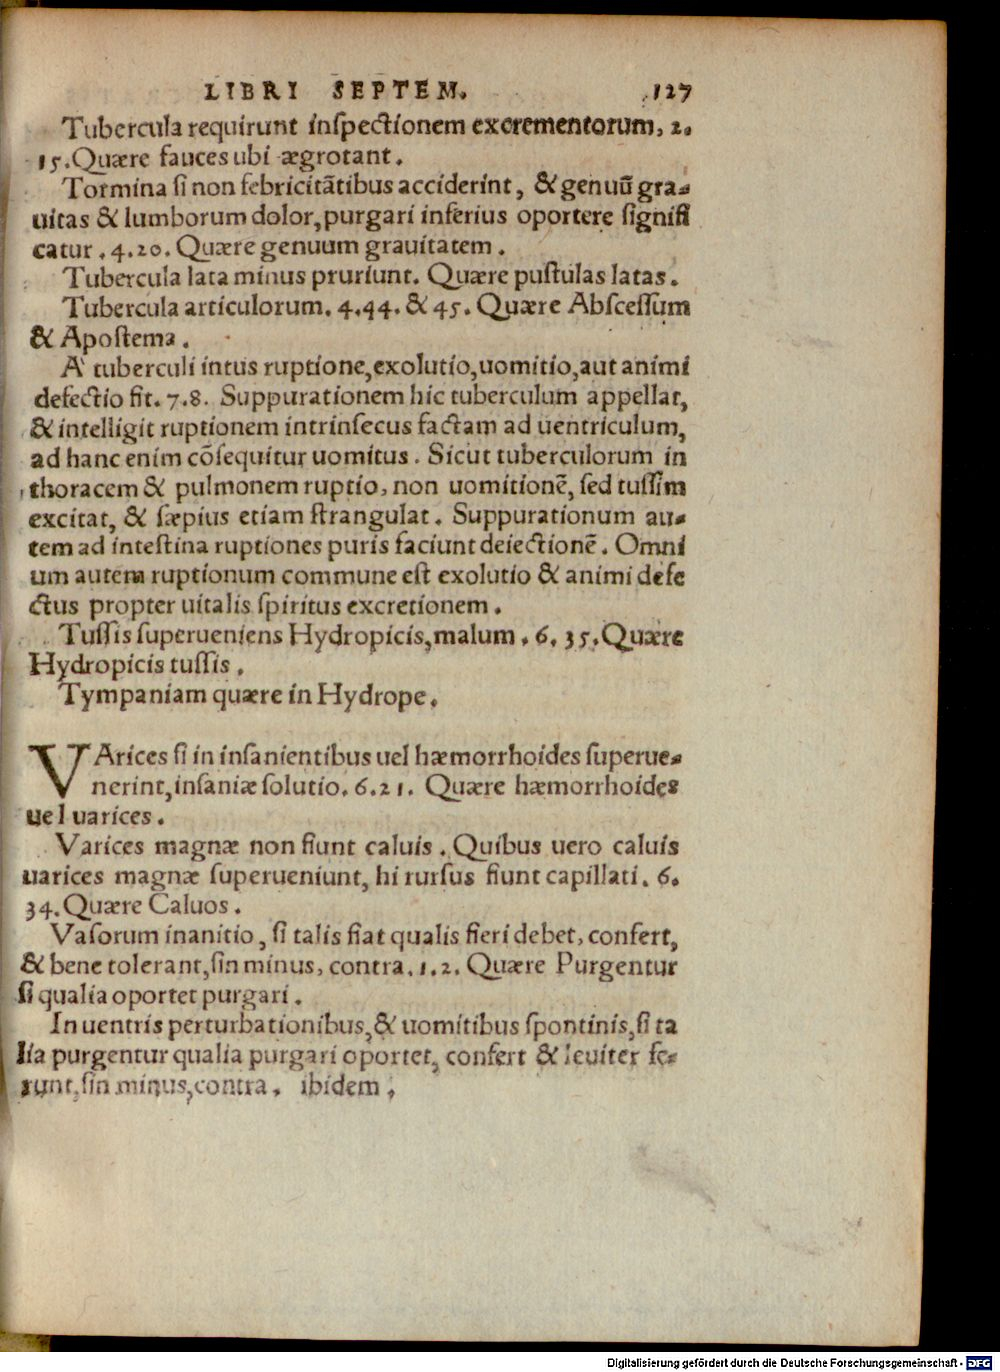 LIBRI SEPTEM. 127
Tubercula requirunt inspectionem excrementorum. 2.
15. Quære fauces ubi ægrotant.
Tormina si non febricitãtibus acciderint, & genuũ gra-
uitas & lumborum dolor, purgari inferius oportere signifi
catur. 4.20. Quære genuum grauitatem.
Tubercula lata minus pruriunt. Quære pustulas latas.
Tubercula articulorum. 4.44. & 45. Quære Abscessum
& Apostema.
A tuberculi intus ruptione, exolutio, uomitio, aut animi
defectio fit. 7.8. Suppurationem hic tuberculum appellat,
& intelligit ruptionem intrinsecus factam ad uentriculum,
ad hanc enim cõsequitur uomitus. Sicut tuberculorum in
thoracem & pulmonem ruptio, non uomitionẽ, sed tussim
excitat, & sæpius etiam strangulat. Suppurationum au-
tem ad intestina ruptiones puris faciunt deiectionẽ. Omni
um autem ruptionum commune est exolutio & animi defe
ctus propter uitalis spiritus excretionem.
Tussis superueniens Hydropicis, malum. 6. 35. Quære
Hydropicis tussis.
Tympaniam quære in Hydrope.
VArices si in insanientibus uel hæmorrhoides superue-
nerint, insaniæ solutio. 6.21. Quære hæmorrhoides
uel uarices.
Varices magnæ non fiunt caluis. Quibus uero caluis
uarices magnæ superueniunt, hi rursus fiunt capillati. 6.
34. Quære Caluos.
Vasorum inanitio, si talis fiat qualis fieri debet, confert,
& bene tolerant, sin minus, contra. 1.2. Quære Purgentur
si qualia oportet purgari.
In uentris perturbationibus, & uomitibus spontinis, si ta
lia purgentur qualia purgari oportet, confert & leuiter fe-
runt, sin minus, contra. ibidem.
Digitalisierung gefördert durch die Deutsche Forschungsgemeinschaft - DFG